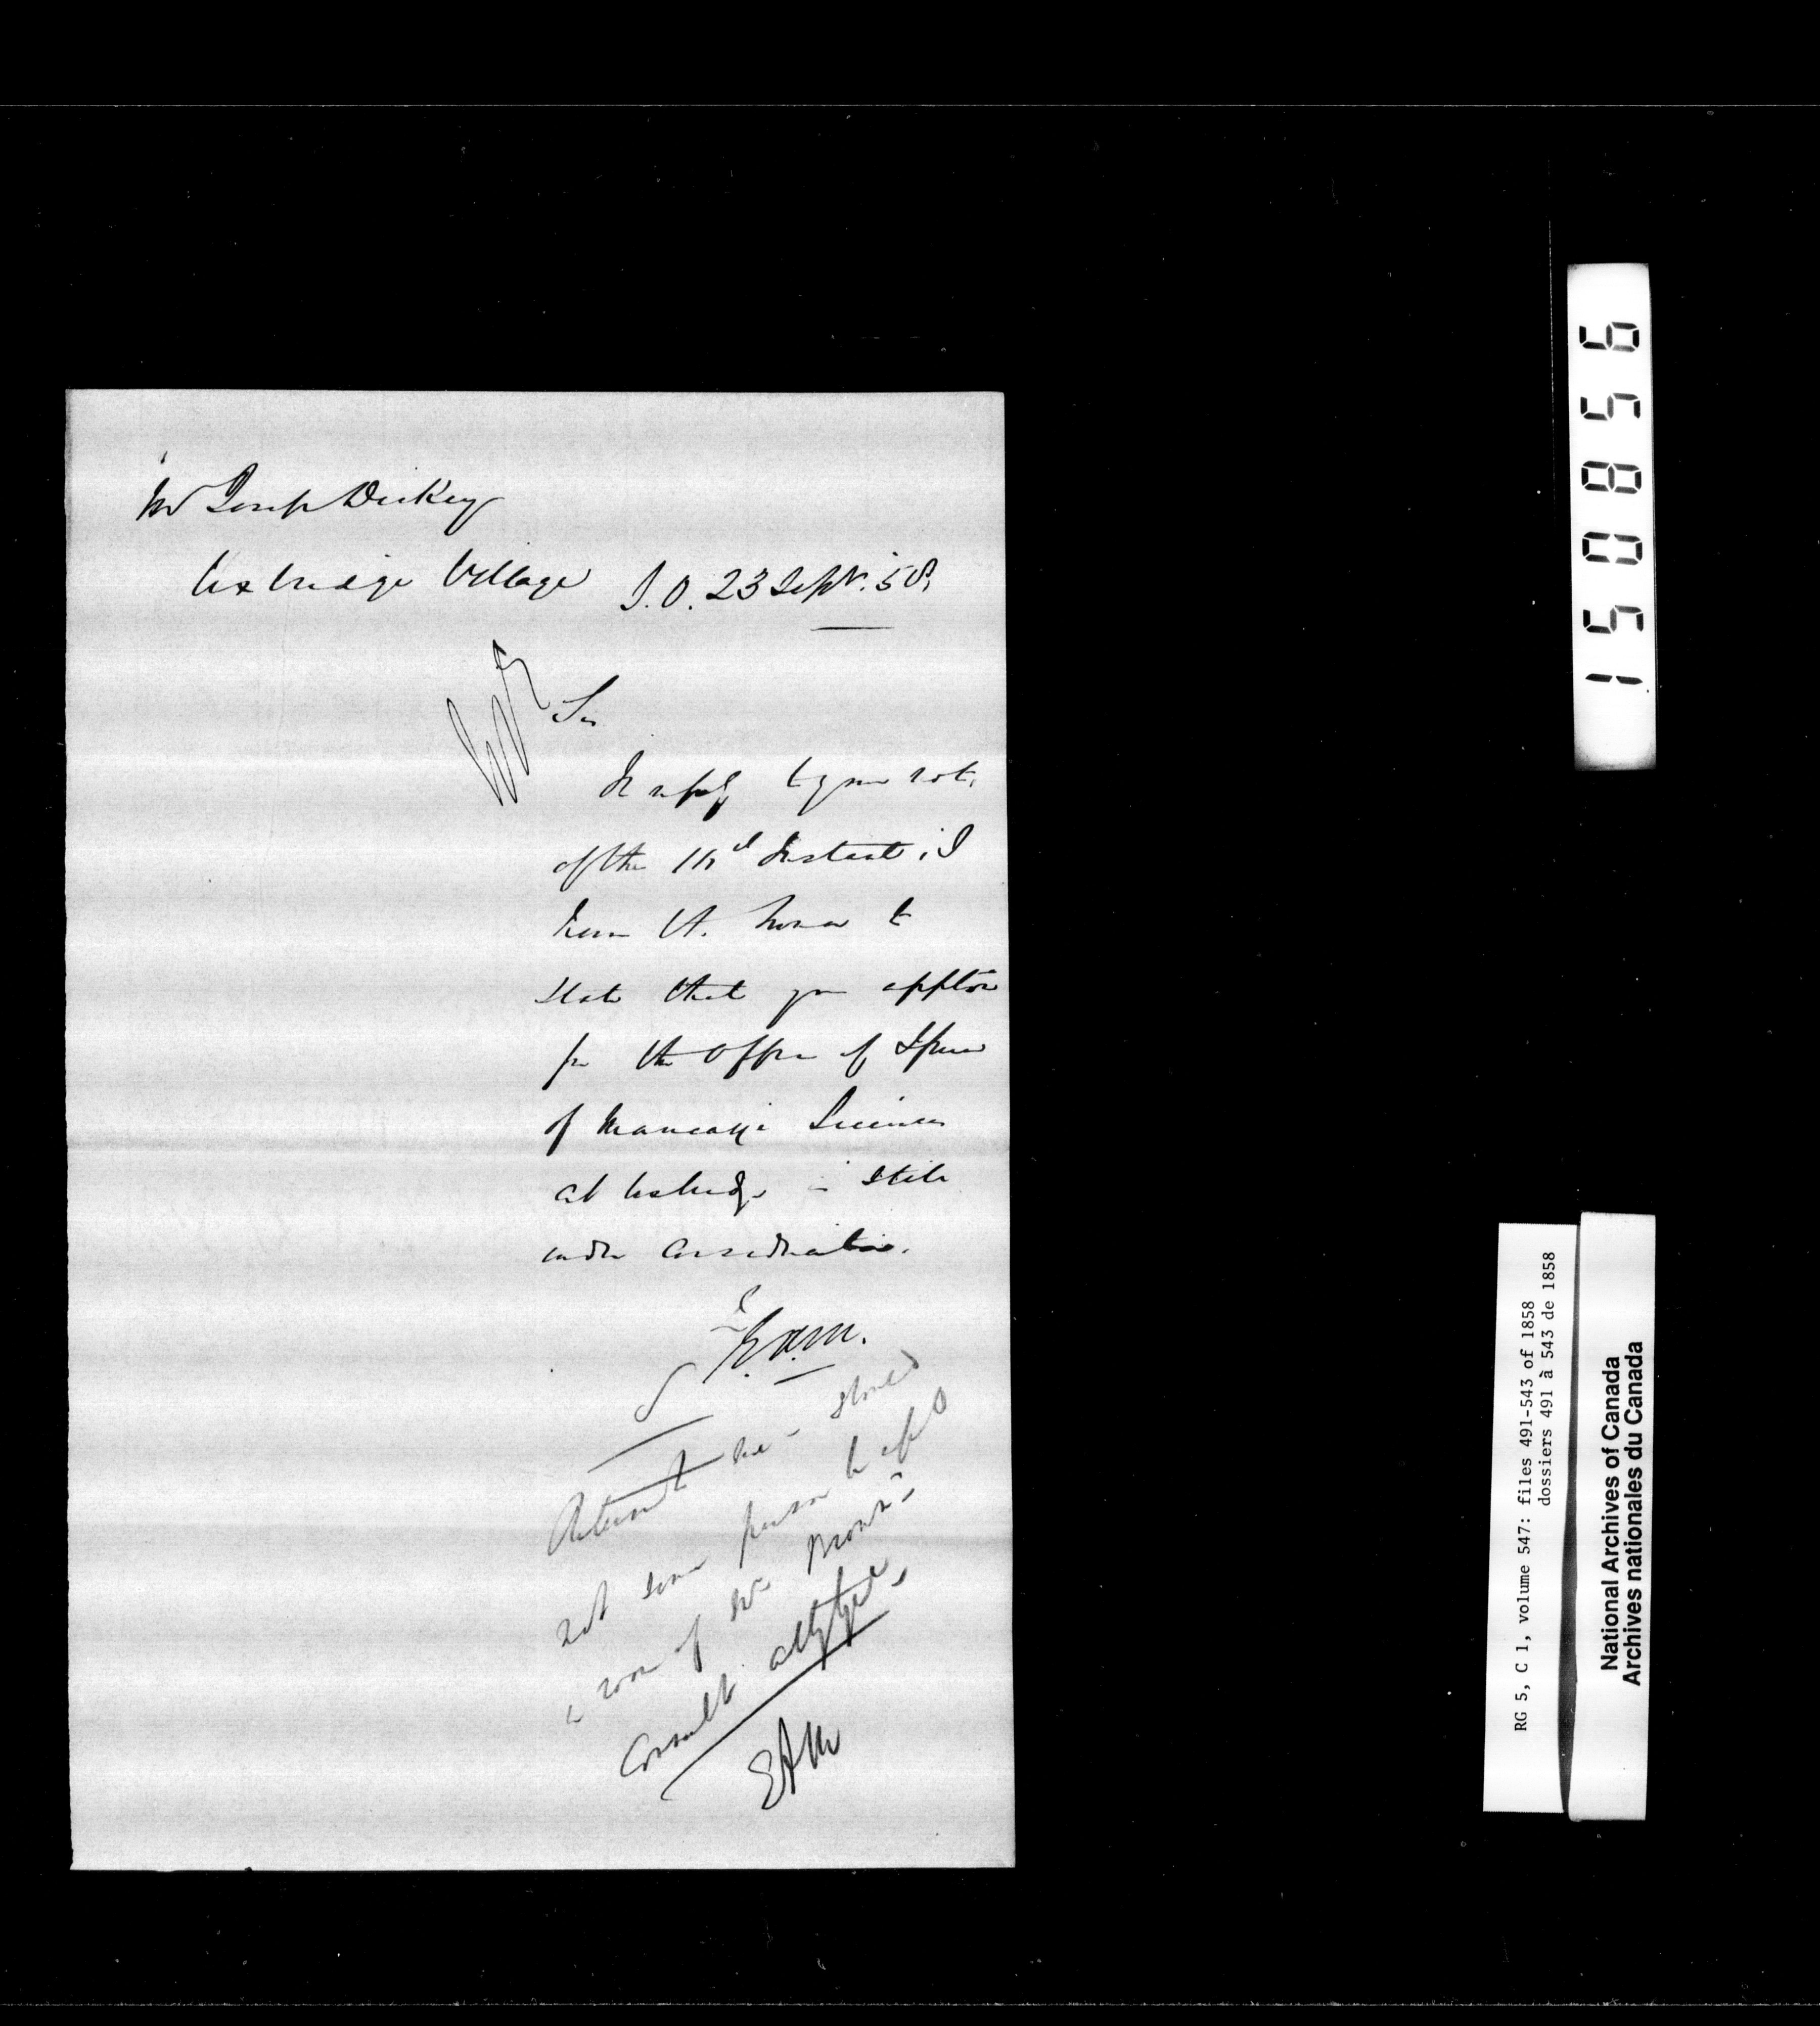 Mr Joseph Dickey
Uxbridge Village
S.O. 23 Septr. 58.
Sir
In reply to your note
of the Instant, I
have the honor to
state that your appltion
for the Office of Issuer
of Marriage Licenses
at Uxbridge is still
under Consideration.
E.A.M.
should
not some person be appd
in room of Mr
Consult Atty Genl
EAM
150856
RG 5, C 1, volume 547: files 491-543 of 1858
dossiers 491 à 543 de 1858
National Archives of Canada
Archives nationales du Canada